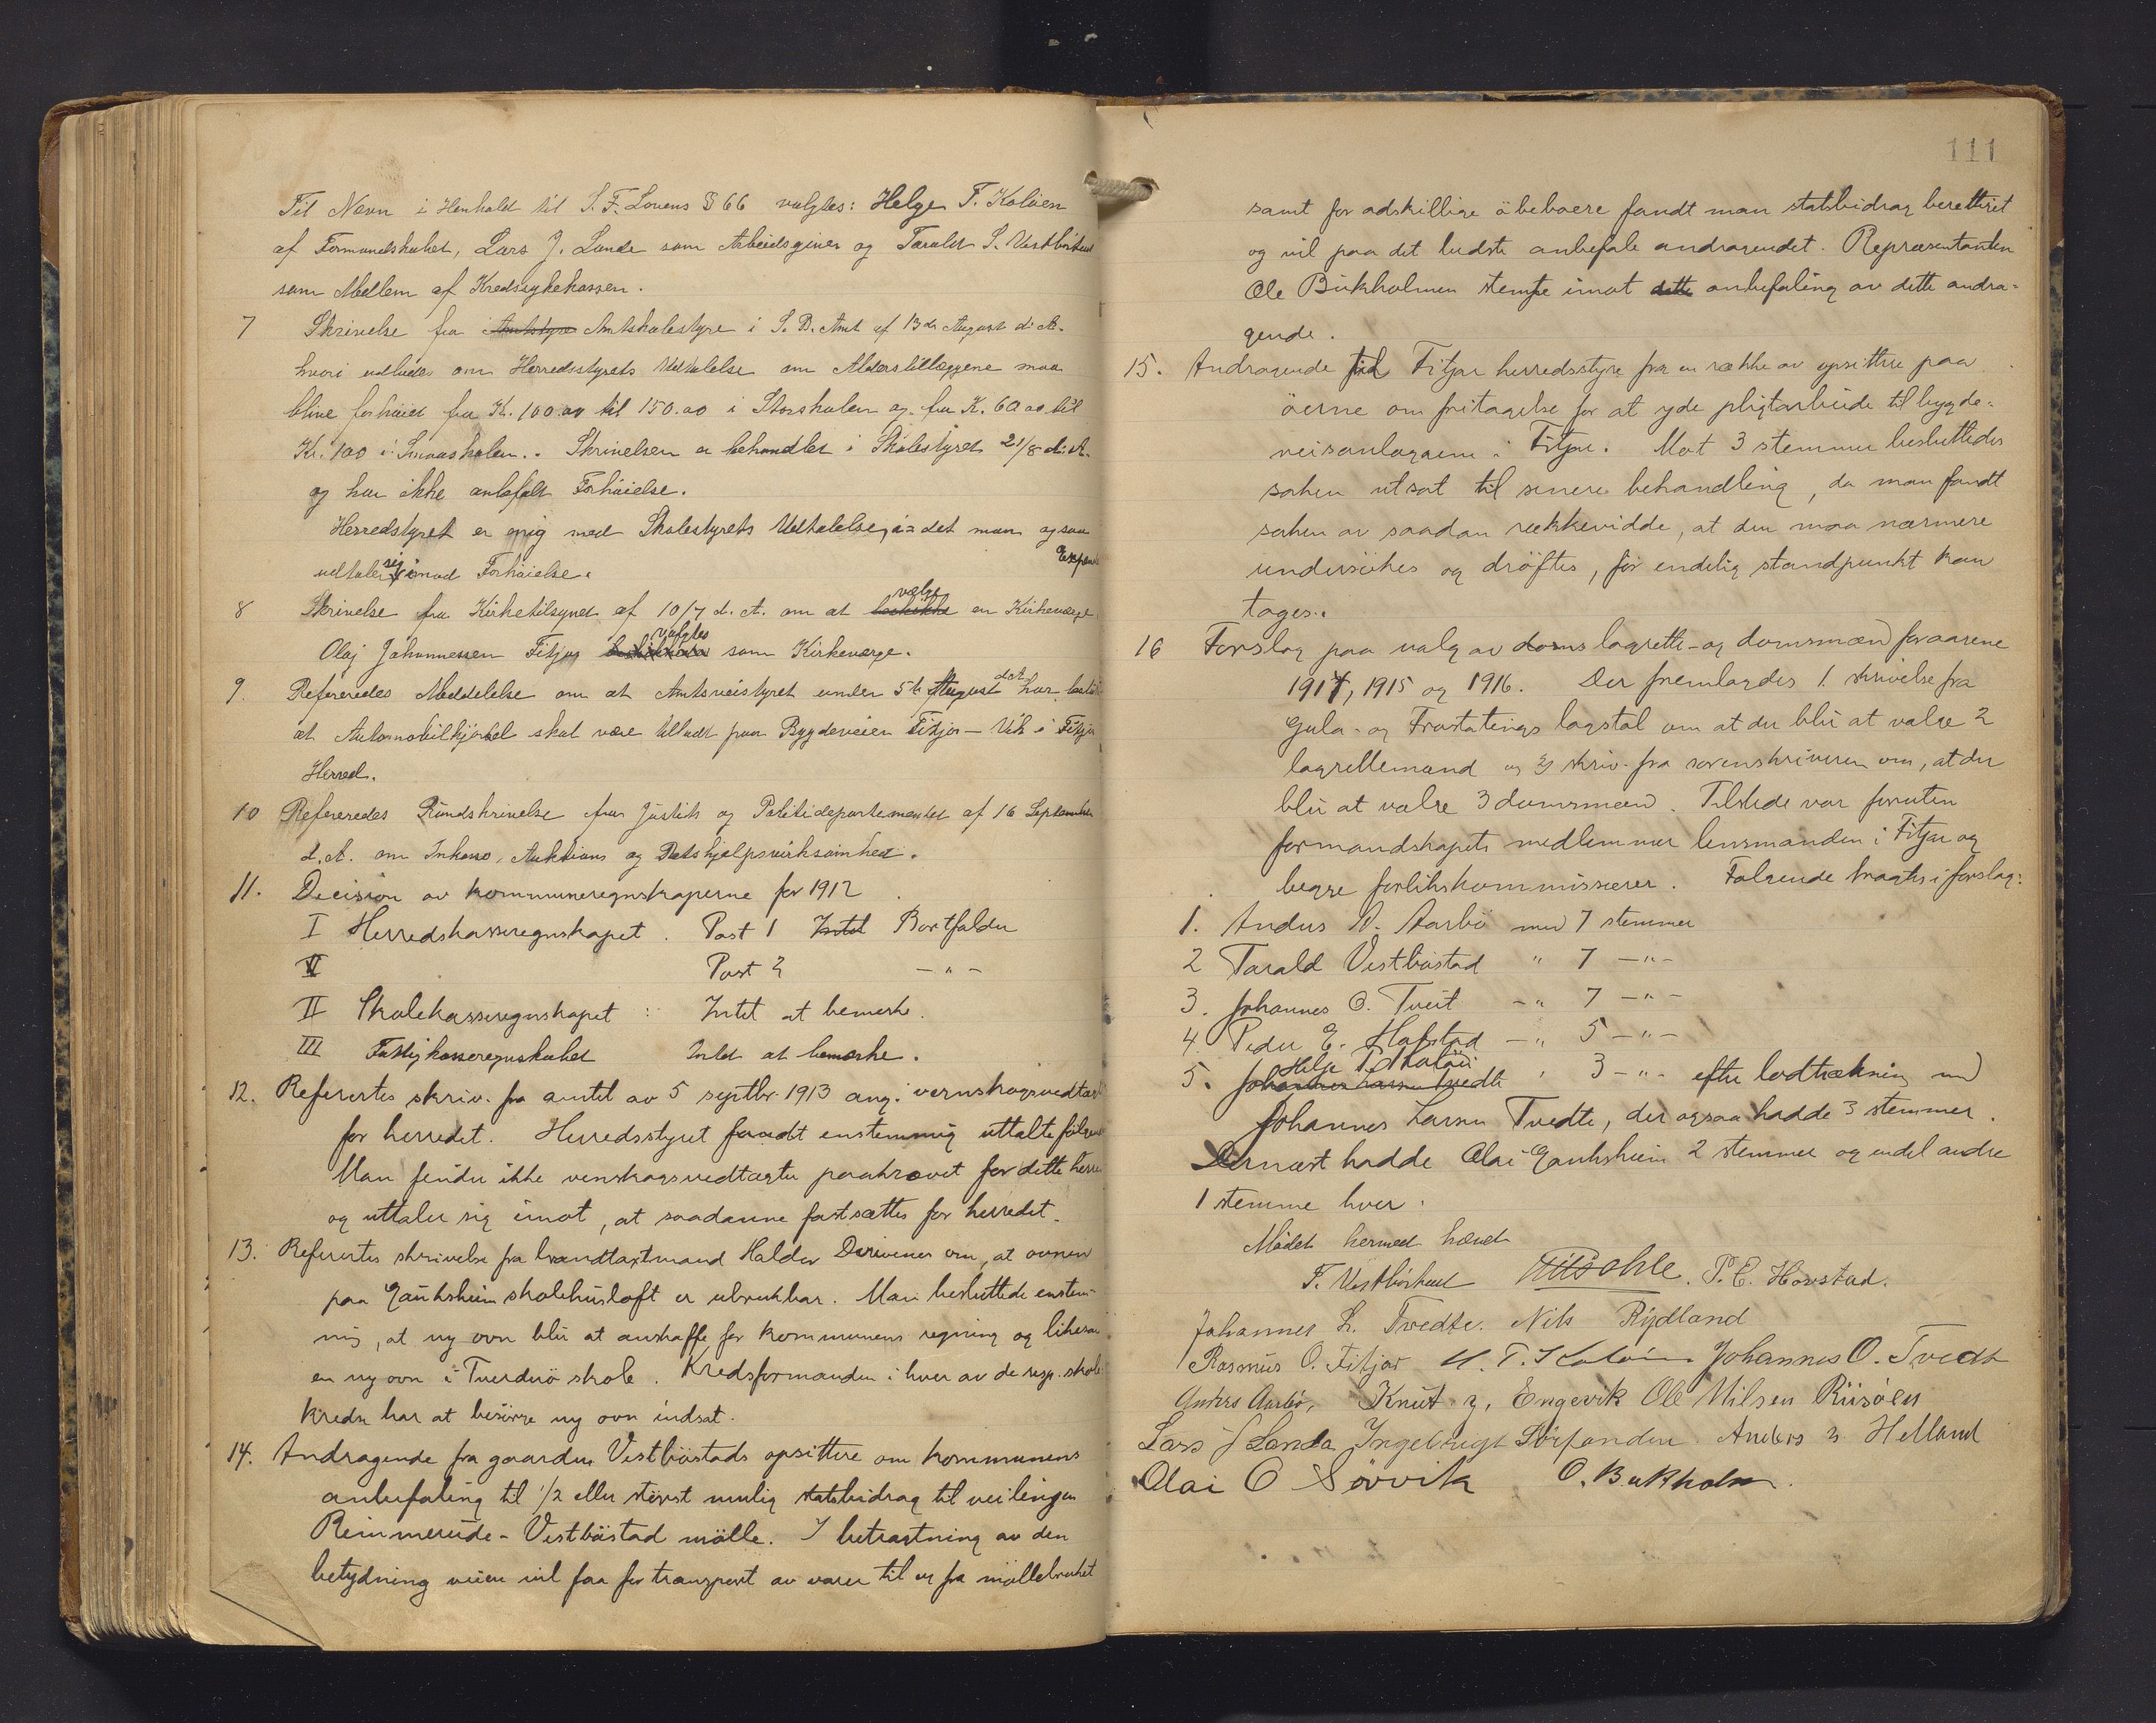 Til Nevn i Henhold til S. F. Lovens § 66 valgtes: Helge T. Koløen
af Formandskabet, Lars J. Lande som Arbeidsgiver og Tarald S. Vestbøstad
som Medlem af Kredssykekassen.
7 Skrivelse fra Amtstyre Amtskolestyre i S. B. Amt af 13de August d. A.
hvori udbedes om Herredsstyrets Udtalelse om Alderstillæggene maa
blive forhøiet fra Kr. 100.00 til 150.00 i Storskolen og fra K. 60.00 til
Kr. 100 i Smaaskolen. Skrivelsen er behandlet i Skolestyret 21/8 d. A.
og har ikke anbefalt Forhøielse.
Herredstyret er enig med Skolestyrets Udtalelse, i det man ogsaa
udtaler sig imod Forhøielse. Exped
8 Skrivelse fra Kirketilsynet af 10/7 d. A. om at beskikke vælge en Kirkeværge.
Olaj Johannessen Fitjar valgtes som Kirkeværge.
9. Refereredes Meddelelse om at Amtsveistyret under 5te August d. A. har
at Automobilkjørsel skal være tilladt paa Bygdeveien Fitjar – Vik i Fitjar
Herred.
10 Refereredes Rundskrivelse fra Justits og Politidepartementet af 16 September
d. A. om Inkasso, Auktions og Retshjælpsvirksomhed.
11. Decision av kommuneregnskaperne for 1912
I Herredskasseregnskapet. Post 1 Intet Bortfalder
II Post 2 – " –
II Skolekasseregnskapet : Intet at bemerke.
III Fattigkasseregnskabet Intet at bemærke.
12. Refertes skriv. fra amtet av 5 septbr. 1913 ang. vernskogvedtægt
for herredet. Herredsstyret fandt enstemmig uttalte følgende
Man finder ikke vernskogsvedtægter paakrævet for dette herred
og uttaler sig imot, at saadanne fastsættes for herredet.
13. Refertes skrivelse fra brandtaxtmand Haldor om, at ovnen
paa Gaukheim skolehusloft er ubrukbar. Man besluttede enstem-
mig, at ny ovn blir at anskaffe for kommunens regning og likesaa
en ny ovn i Tverdrø skole. Kredsformanden i hver av de resp. skole
kredse har at besørge ny ovn indsat.
14. Andragende fra gaarden Vestbøstads opsittere om kommunens
anbefaling til 1/2 eller størst mulig statsbidrag til veilengen
Rimmereide – Vestbøstad mølle. I betragtning av den
betydning veien vil faa for transport av varer til og fra møllebruket
111
samt for adskillige øbeboere fandt man statsbidrag berettiget
og vil paa det bedste anbefale andragendet. Repræsentanten
Ole Bukholmen stemte imot dette anbefaling av dette andra-
gende.
15. Andragende til Fitjar herredsstyre fra en række av opsittere paa
øerne om fritagelse for at yde pligtarbeide til bygde-
veisanlæggene i Fitjar. Mot 3 stemmer besluttedes
saken utsat til senere behandling, da man fandt
saken av saadan rækkevidde, at den maa nærmere
undersøkes og drøftes, før endelig standpunkt kan
tages.
16 Forslag paa valg av doms lagrette- og domsmænd for aarene
1914, 1915 og 1916. Der fremlagdes 1. skrivelse fra
Gula- og Frostatings lagstol om at der blir at vælge 2
lagrettemænd og 2) skriv. fra sorenskriveren om, at der
blir at vælge 3 domsmænd. Tilstede var foruten
formandskapets medlemmer lensmanden i Fitjar og
begge forlikskommissærer. Følgende bragtes i forslag:
1. Anders N. Aarbø med 7 stemmer
2 Tarald Vestbøstad " 7 – " –
3. Johannes O. Tveit – " 7 – " –
4. Peder E. Hafstad – " 5 – " –
5. Johannes Larsen Tvedte Helge T. Koløen " 3 – " – efter lodtrækning med
Johannes Larsen Tvedte, der ogsaa hadde 3 stemmer.
Dernæst hadde Olai Gaukheim 2 stemmer og endel andre
1 stemme hver.
Mødet hermed hævet
T. Vestbøstad P. E. Havstad.
Johannes L. Tvedte. Nils Rydland
Rasmus O. Fitjar H. T. Koløen Johannes O. Tvedt
Anders Aarbø, Knut J. Engevik Ole Nilsen Riisøen
Lars J Landa Ingebrigt Sørfonden Anders N. Helland
Olai O Sørvik O. Bukholm.